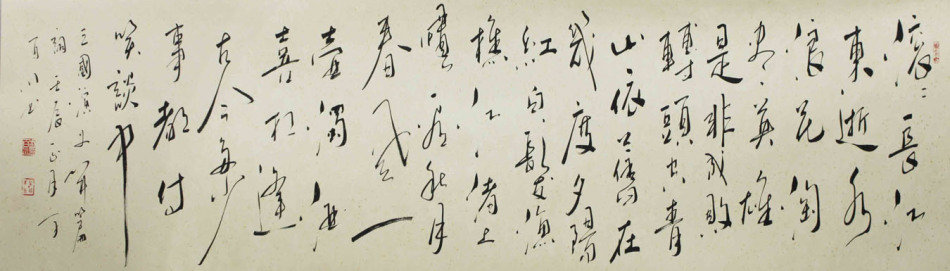 滚〻長江
東逝水
浪花淘
盡英雄
是非成敗
轉頭空青
山依舊在
幾度夕陽
紅白髮漁
樵江渚上
慣看秋月
春風一
壺濁酒
喜相逢
古今多少
事都付
笑談中
三國演义開篇
詞壬辰正月